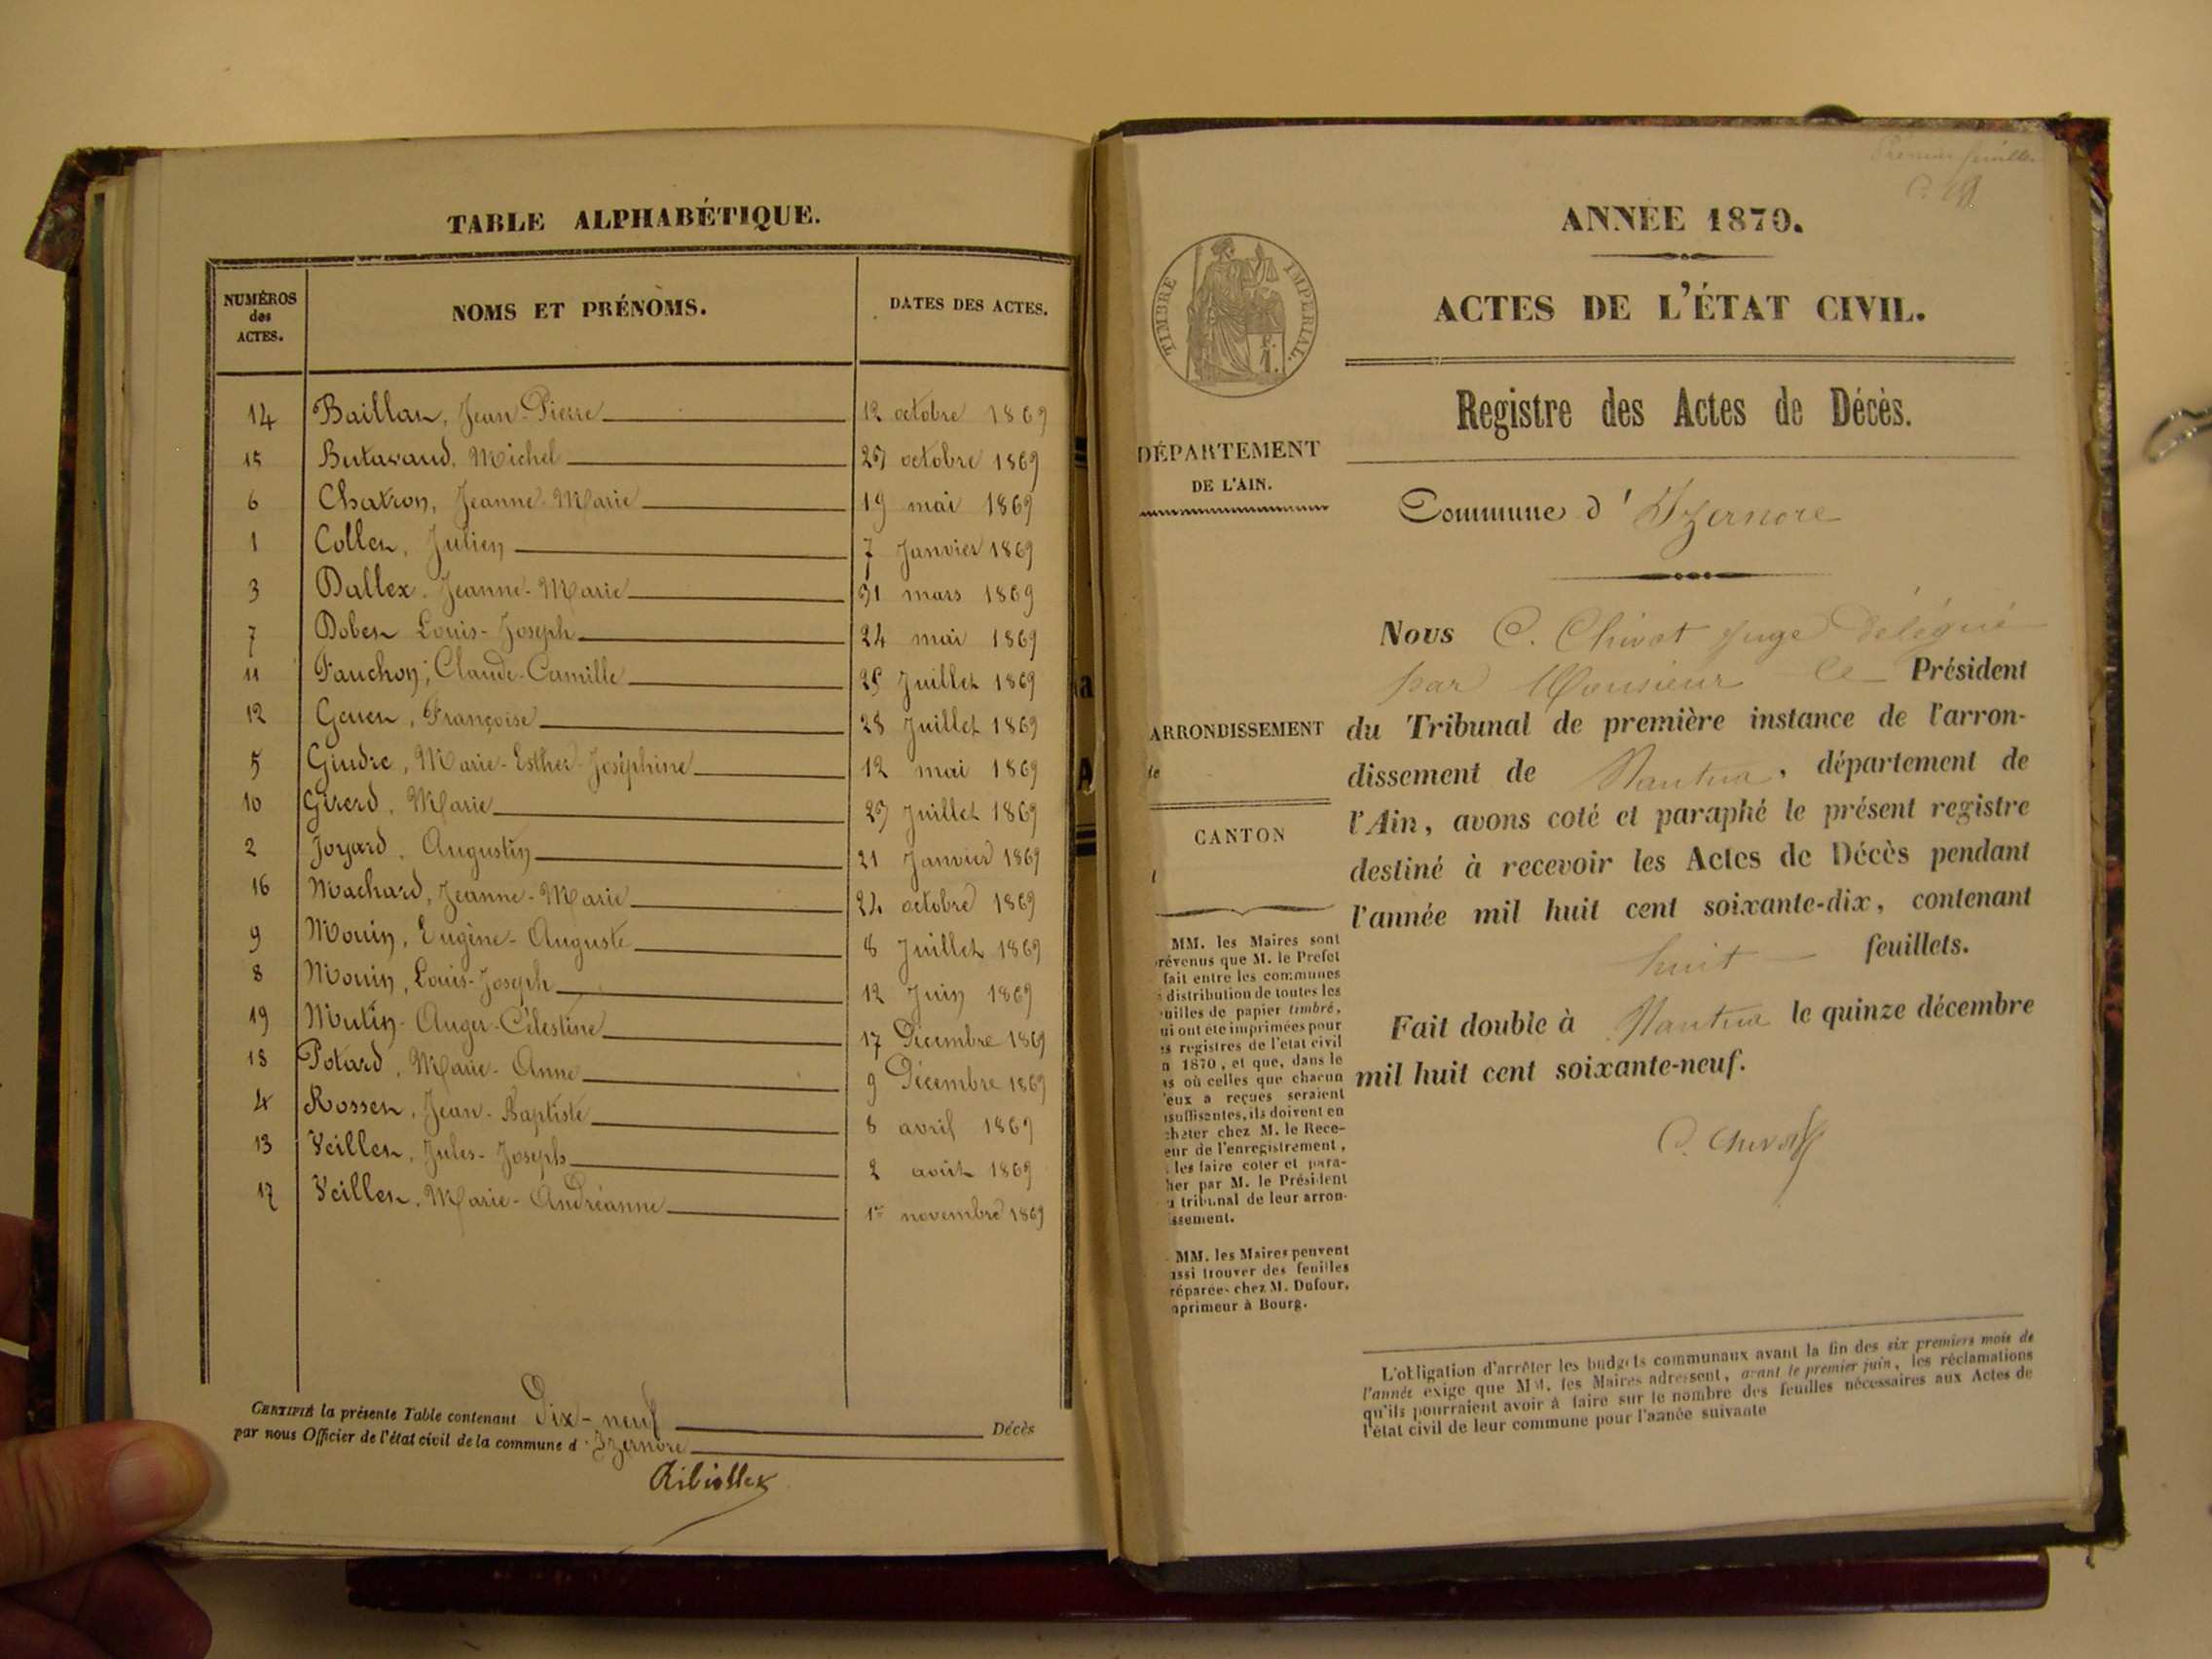 TABLE ALPHABÉTIQUE.
NUMÉROS des ACTES. NOMS ET PRÉNOMS. DATES DES ACTES.
14 Baillat, Jean-Pierre 12 octobre 1869
15 Butavand, Michel octobre 1869
6 Chatron, Jeanne-Marie 19 mai 1869
1 Collet, Julien 7 Janvier 1869
3 Dallex, Jeanne-Marie 31 mars 1869
7 Dobet Louis-Joseph 24 mai 1869
11 Fauchon, Claude-Camille 25 Juillet 1869
12 Françoise 28 Juillet 1869
5 Gindre, Marie-Esther-Joséphine 12 mai 1869
10 Girerd, Marie Juillet 1869
2 Joyard, Augustin 21 Janvier 1869
16 Machard, Jeanne-Marie 24 octobre 1869
9 Mouin, Eugène-Auguste 8 Juillet 1869
8 Mouin, Louis-Joseph 12 Juin 1869
19 Mutin-Auger-Célestine 17 Décembre 1869
18 Potard, Marie-Anne 9 Décembre 1869
4 Rosset, Jean-Baptiste 8 avril 1869
13 Veillet, Jules-Joseph 2 août 1869
17 Veillet, Marie-Andréanne 1er novembre 1869
CERTIFIÉ la présente Table contenant Dix-neuf Décès
par nous Officier de l'état civil de la commune d'Izernore
Ribiollet
Premier feuillet
ANNÉE 1870.
TIMBRE IMPÉRIAL.
ACTES DE L'ÉTAT CIVIL.
Registre des Actes de Décès.
DÉPARTEMENT
DE L'AIN.
Commune d'Izernore
Nous C. Chivot juge délégué
par Monsieur le Président
du Tribunal de première instance de l'arron-
dissement de Nantua, département de
l'Ain, avons coté et paraphé le présent registre
destiné à recevoir les Actes de Décès pendant
l'année mil huit cent soixante-dix, contenant
huit feuillets.
Fait double à Nantua le quinze décembre
mil huit cent soixante-neuf.
C. Chivot
ARRONDISSEMENT
CANTON
MM. les Maires sont
révenus que M. le Préfet
fait entre les communes
distribution de toutes les
uilles de papier timbré,
ui ont été imprimées pour
s registres de l'état civil
n 1870, et que, dans le
as où celles que chacun
'eux a reçues seraient
nsuffisantes, ils doivent en
cheter chez M. le Rece-
eur de l'enregistrement,
les faire coter et para-
her par M. le Président
u tribunal de leur arron-
issement.
MM. les Maires peuvent
ussi trouver des feuilles
réparées chez M. Dufour,
mprimeur à Bourg.
L'obligation d'arrêter les budgets communaux avant la fin des six premiers mois de
l'année exige que MM. les Maires adressent, avant le premier juin, les réclamations
qu'ils pourraient avoir à faire sur le nombre des feuilles nécessaires aux Actes de
l'état civil de leur commune pour l'année suivante